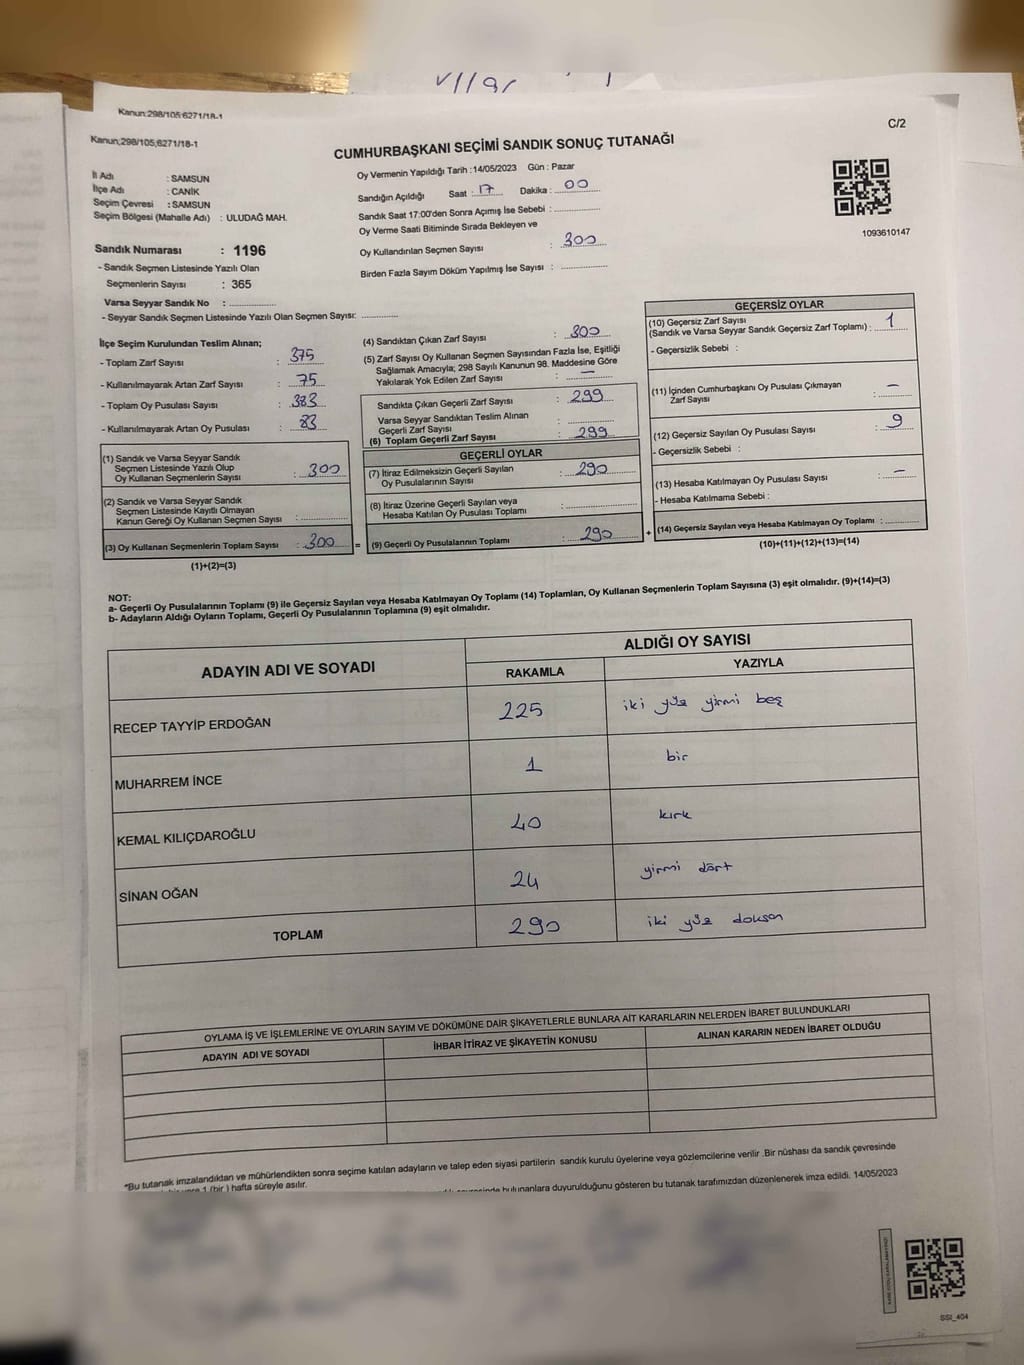 Kanun:298/105;6271/18-1
Kanun;298/105;6271/18-1
C/2
CUMHURBAŞKANI SEÇİMİ SANDIK SONUÇ TUTANAĞI
İl Adı : SAMSUN
İlçe Adı : CANİK
Seçim Çevresi : SAMSUN
Seçim Bölgesi (Mahalle Adı) : ULUDAĞ MAH.
Sandık Numarası : 1196
- Sandık Seçmen Listesinde Yazılı Olan
Seçmenlerin Sayısı : 365
Varsa Seyyar Sandık No :
- Seyyar Sandık Seçmen Listesinde Yazılı Olan Seçmen Sayısı:
Oy Vermenin Yapıldığı Tarih :14/05/2023 Gün : Pazar
Sandığın Açıldığı Saat : 17 Dakika : 00
Sandık Saat 17:00'den Sonra Açımış İse Sebebi :
Oy Verme Saati Bitiminde Sırada Bekleyen ve
Oy Kullandırılan Seçmen Sayısı : 300
Birden Fazla Sayım Döküm Yapılmış İse Sayısı :
1093610147
İlçe Seçim Kurulundan Teslim Alınan;
- Toplam Zarf Sayısı : 375
- Kullanılmayarak Artan Zarf Sayısı : 75
- Toplam Oy Pusulası Sayısı : 383
- Kullanılmayarak Artan Oy Pusulası : 83
(1) Sandık ve Varsa Seyyar Sandık
Seçmen Listesinde Yazılı Olup
Oy Kullanan Seçmenlerin Sayısı : 300
(2) Sandık ve Varsa Seyyar Sandık
Seçmen Listesinde Kayıtlı Olmayan
Kanun Gereği Oy Kullanan Seçmen Sayısı :
(3) Oy Kullanan Seçmenlerin Toplam Sayısı : 300
(1)+(2)=(3)
=
(4) Sandıktan Çıkan Zarf Sayısı : 300
(5) Zarf Sayısı Oy Kullanan Seçmen Sayısından Fazla İse, Eşitliği
Sağlamak Amacıyla; 298 Sayılı Kanunun 98. Maddesine Göre
Yakılarak Yok Edilen Zarf Sayısı : —
Sandıkta Çıkan Geçerli Zarf Sayısı : 299
Varsa Seyyar Sandıktan Teslim Alınan
Geçerli Zarf Sayısı :
(6) Toplam Geçerli Zarf Sayısı : 299
GEÇERLİ OYLAR
(7) İtiraz Edilmeksizin Geçerli Sayılan
Oy Pusulalarının Sayısı : 290
(8) İtiraz Üzerine Geçerli Sayılan veya
Hesaba Katılan Oy Pusulası Toplamı :
(9) Geçerli Oy Pusulalarının Toplamı : 290
+
GEÇERSİZ OYLAR
(10) Geçersiz Zarf Sayısı
(Sandık ve Varsa Seyyar Sandık Geçersiz Zarf Toplamı) : 1
- Geçersizlik Sebebi :
(11) İçinden Cumhurbaşkanı Oy Pusulası Çıkmayan
Zarf Sayısı : —
(12) Geçersiz Sayılan Oy Pusulası Sayısı : 9
- Geçersizlik Sebebi :
(13) Hesaba Katılmayan Oy Pusulası Sayısı : —
- Hesaba Katılmama Sebebi :
(14) Geçersiz Sayılan veya Hesaba Katılmayan Oy Toplamı :
(10)+(11)+(12)+(13)=(14)
NOT:
a- Geçerli Oy Pusulalarının Toplamı (9) ile Geçersiz Sayılan veya Hesaba Katılmayan Oy Toplamı (14) Toplamları, Oy Kullanan Seçmenlerin Toplam Sayısına (3) eşit olmalıdır. (9)+(14)=(3)
b- Adayların Aldığı Oyların Toplamı, Geçerli Oy Pusulalarının Toplamına (9) eşit olmalıdır.
ADAYIN ADI VE SOYADI
ALDIĞI OY SAYISI
RAKAMLA YAZIYLA
RECEP TAYYİP ERDOĞAN 225 iki yüz yirmi beş
MUHARREM İNCE 1 bir
KEMAL KILIÇDAROĞLU 40 kırk
SİNAN OĞAN 24 yirmi dört
TOPLAM 290 iki yüz doksan
OYLAMA İŞ VE İŞLEMLERİNE VE OYLARIN SAYIM VE DÖKÜMÜNE DAİR ŞİKAYETLERLE BUNLARA AİT KARARLARIN NELERDEN İBARET BULUNDUKLARI
ADAYIN ADI VE SOYADI İHBAR İTİRAZ VE ŞİKAYETİN KONUSU ALINAN KARARIN NEDEN İBARET OLDUĞU
*Bu tutanak imzalandıktan ve mühürlendikten sonra seçime katılan adayların ve talep eden siyasi partilerin sandık kurulu üyelerine veya gözlemcilerine verilir .Bir nüshası da sandık çevresinde
1 (bir ) hafta süreyle asılır.
bulunanlara duyurulduğunu gösteren bu tutanak tarafımızdan düzenlenerek imza edildi. 14/05/2023
SSI_404